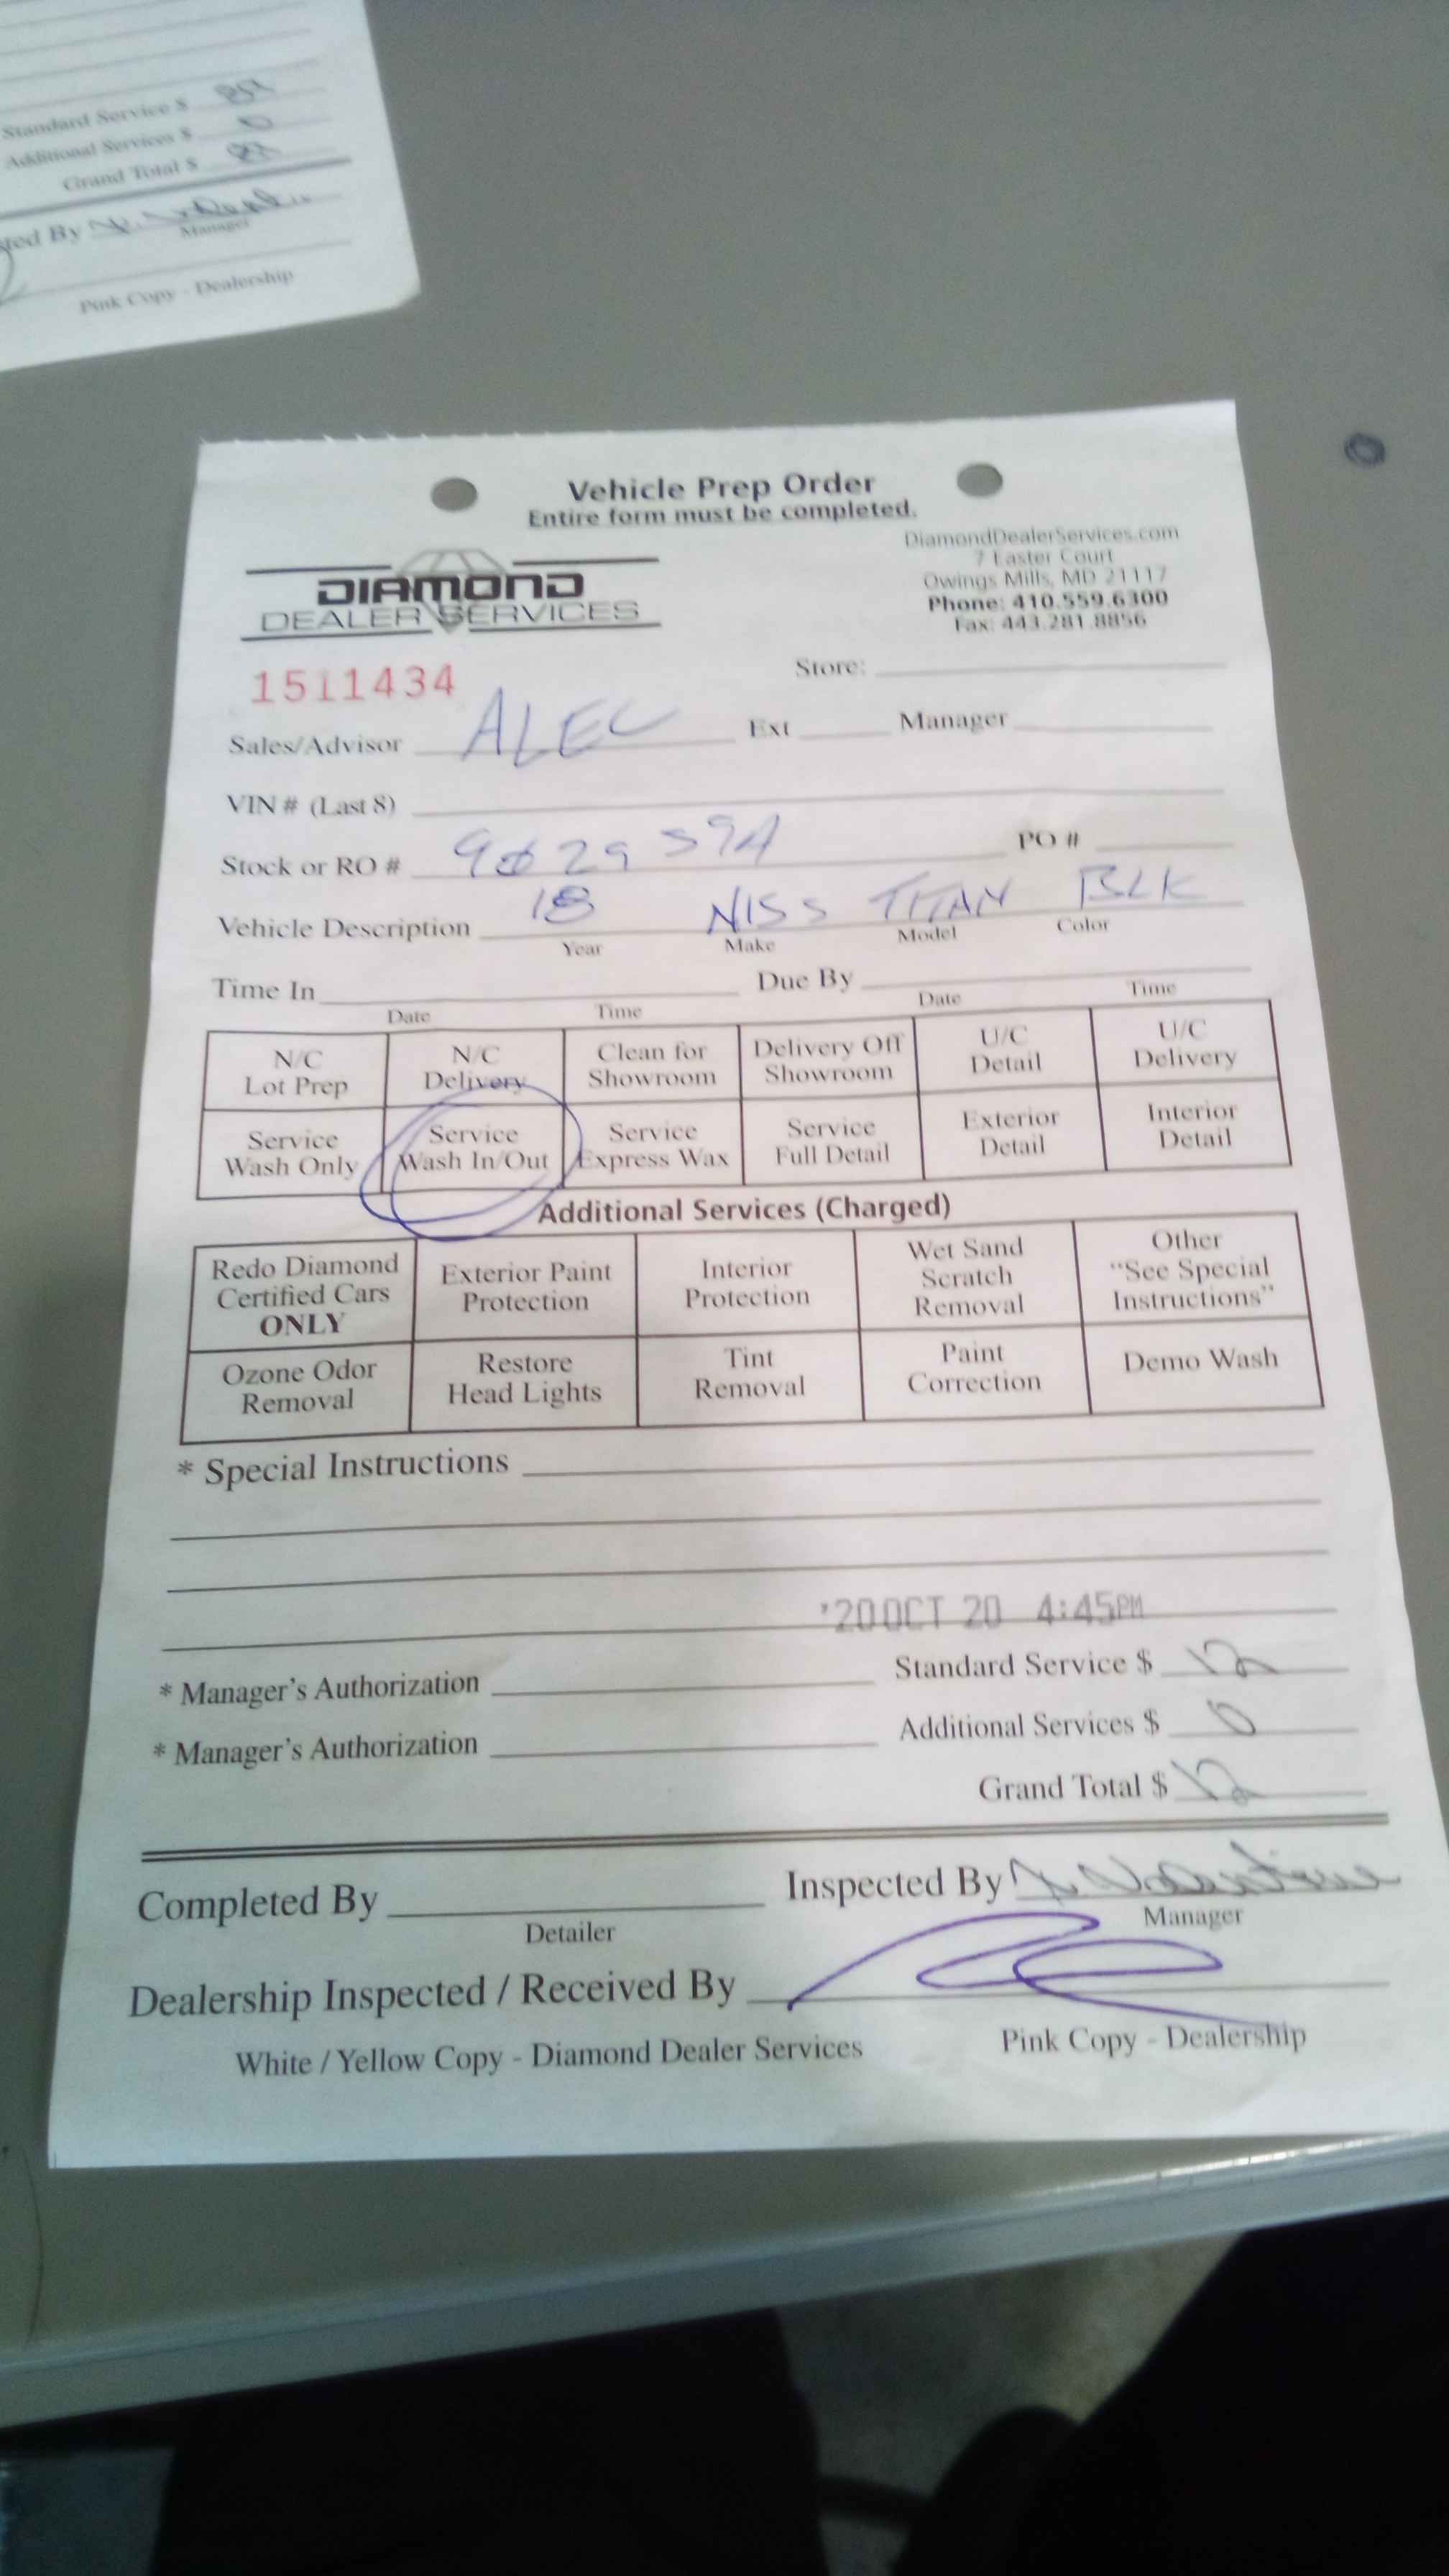 Standard Service $
Additional Services $ 0
Grand Total $
ted By
Manager
Pink Copy - Dealership
Vehicle Prep Order
Entire form must be completed.
DiamondDealerServices.com
7 Easter Court
Owings Mills, MD 21117
Phone: 410.559.6300
Fax: 443.281.8856
DIAMOND
DEALER SERVICES
1511434
Store:
Sales/Advisor ALEC Ext Manager
VIN # (Last 8)
Stock or RO # PO #
Vehicle Description 18 NISS TITAN BLK
Year Make Model Color
Time In Due By
Date Time Date Time
N/C Lot Prep
N/C Delivery
Clean for Showroom
Delivery Off Showroom
U/C Detail
U/C Delivery
Service Wash Only
Service Wash In/Out
Service Express Wax
Service Full Detail
Exterior Detail
Interior Detail
Additional Services (Charged)
Redo Diamond Certified Cars ONLY
Exterior Paint Protection
Interior Protection
Wet Sand Scratch Removal
Other "See Special Instructions"
Ozone Odor Removal
Restore Head Lights
Tint Removal
Paint Correction
Demo Wash
* Special Instructions
'20 OCT 20 4:45PM
* Manager's Authorization Standard Service $ 12
* Manager's Authorization Additional Services $ 0
Grand Total $ 12
Completed By Inspected By
Detailer Manager
Dealership Inspected / Received By
White / Yellow Copy - Diamond Dealer Services Pink Copy - Dealership